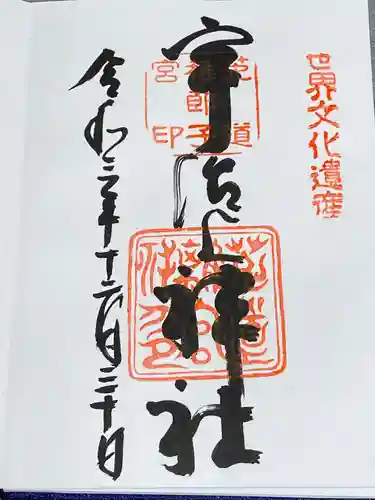 世界文化遺産
菟道
稚郎子
宮印
宇治上神社
令和三年十二月二十日